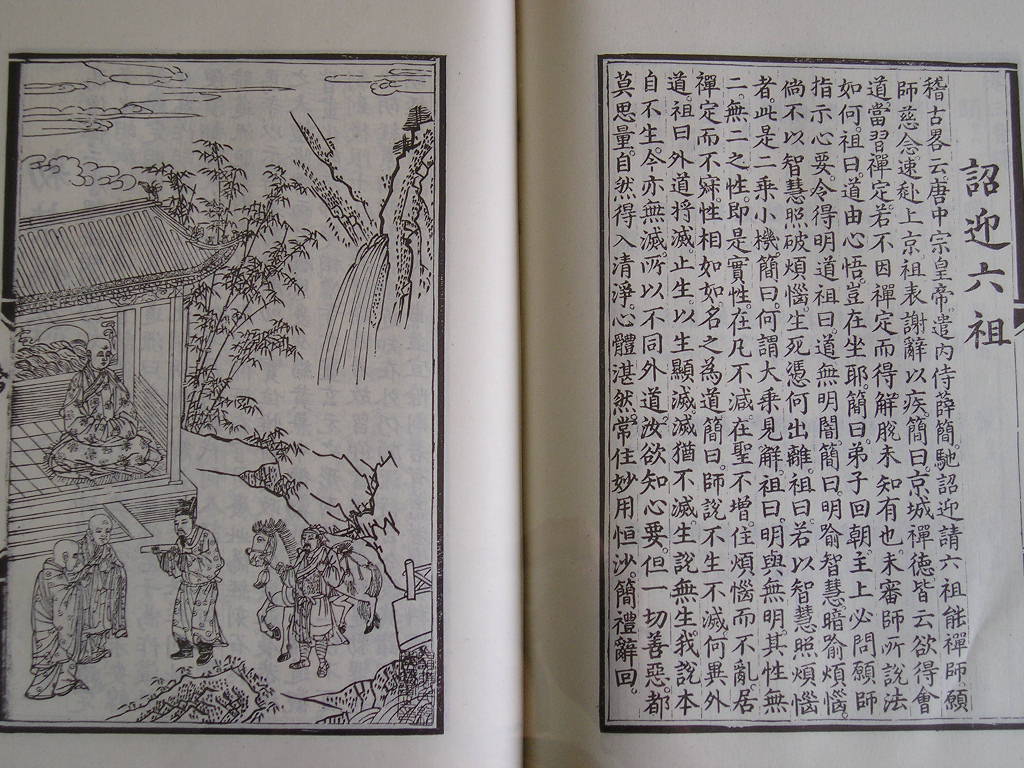 詔迎六祖
稽古畧云。唐中宗皇帝。遣內侍薛簡。馳詔迎請六祖能禪師。願
師慈念。速赴上京。祖表謝辭以疾。簡曰。京城禪德皆云。欲得會
道。當習禪定。若不因禪定而得解脫。未知有也。未審師所說法
如何。祖曰。道由心悟。豈在坐耶。簡曰。弟子回朝。主上必問。願師
指示心要。令得明道。祖曰。道無明闇。簡曰。明喻智慧。暗喻煩惱。
倘不以智慧照破煩惱。生死憑何出離。祖曰。若以智慧照煩惱
者。此是二乘小機。簡曰。何謂大乘見解。祖曰。明與無明。其性無
二。無二之性。即是實性。在凡不減。在聖不增。住煩惱而不亂。居
禪定而不寂。性相如如。名之為道。簡曰。師說不生不滅。何異外
道。祖曰。外道將滅止生。以生顯滅。滅猶不滅。生說無生。我說本
自不生。今亦無滅。所以不同外道。汝欲知心要。但一切善惡。都
莫思量。自然得入清淨。心體湛然。常住妙用恒沙。簡禮辭回。